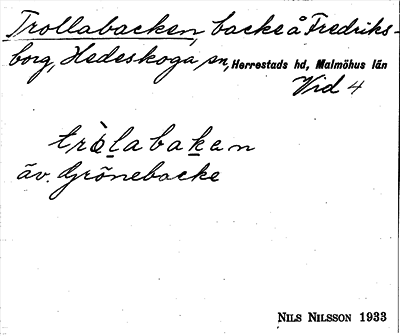 Trollabacken, backe å Fredriks-
borg, Hedeskoga sn, Herrestads hd, Malmöhus län
Vid 4
tròlabakan
äv. Grönebacke
NILS NILSSON 1933